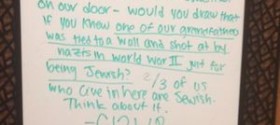 on our door - would you draw that
if you knew one of our grandfathers
was tied to a wall and shot at by
nazis in world war II just for
being Jewish? 2/3 of us
who live in here are Jewish.
Think about it.